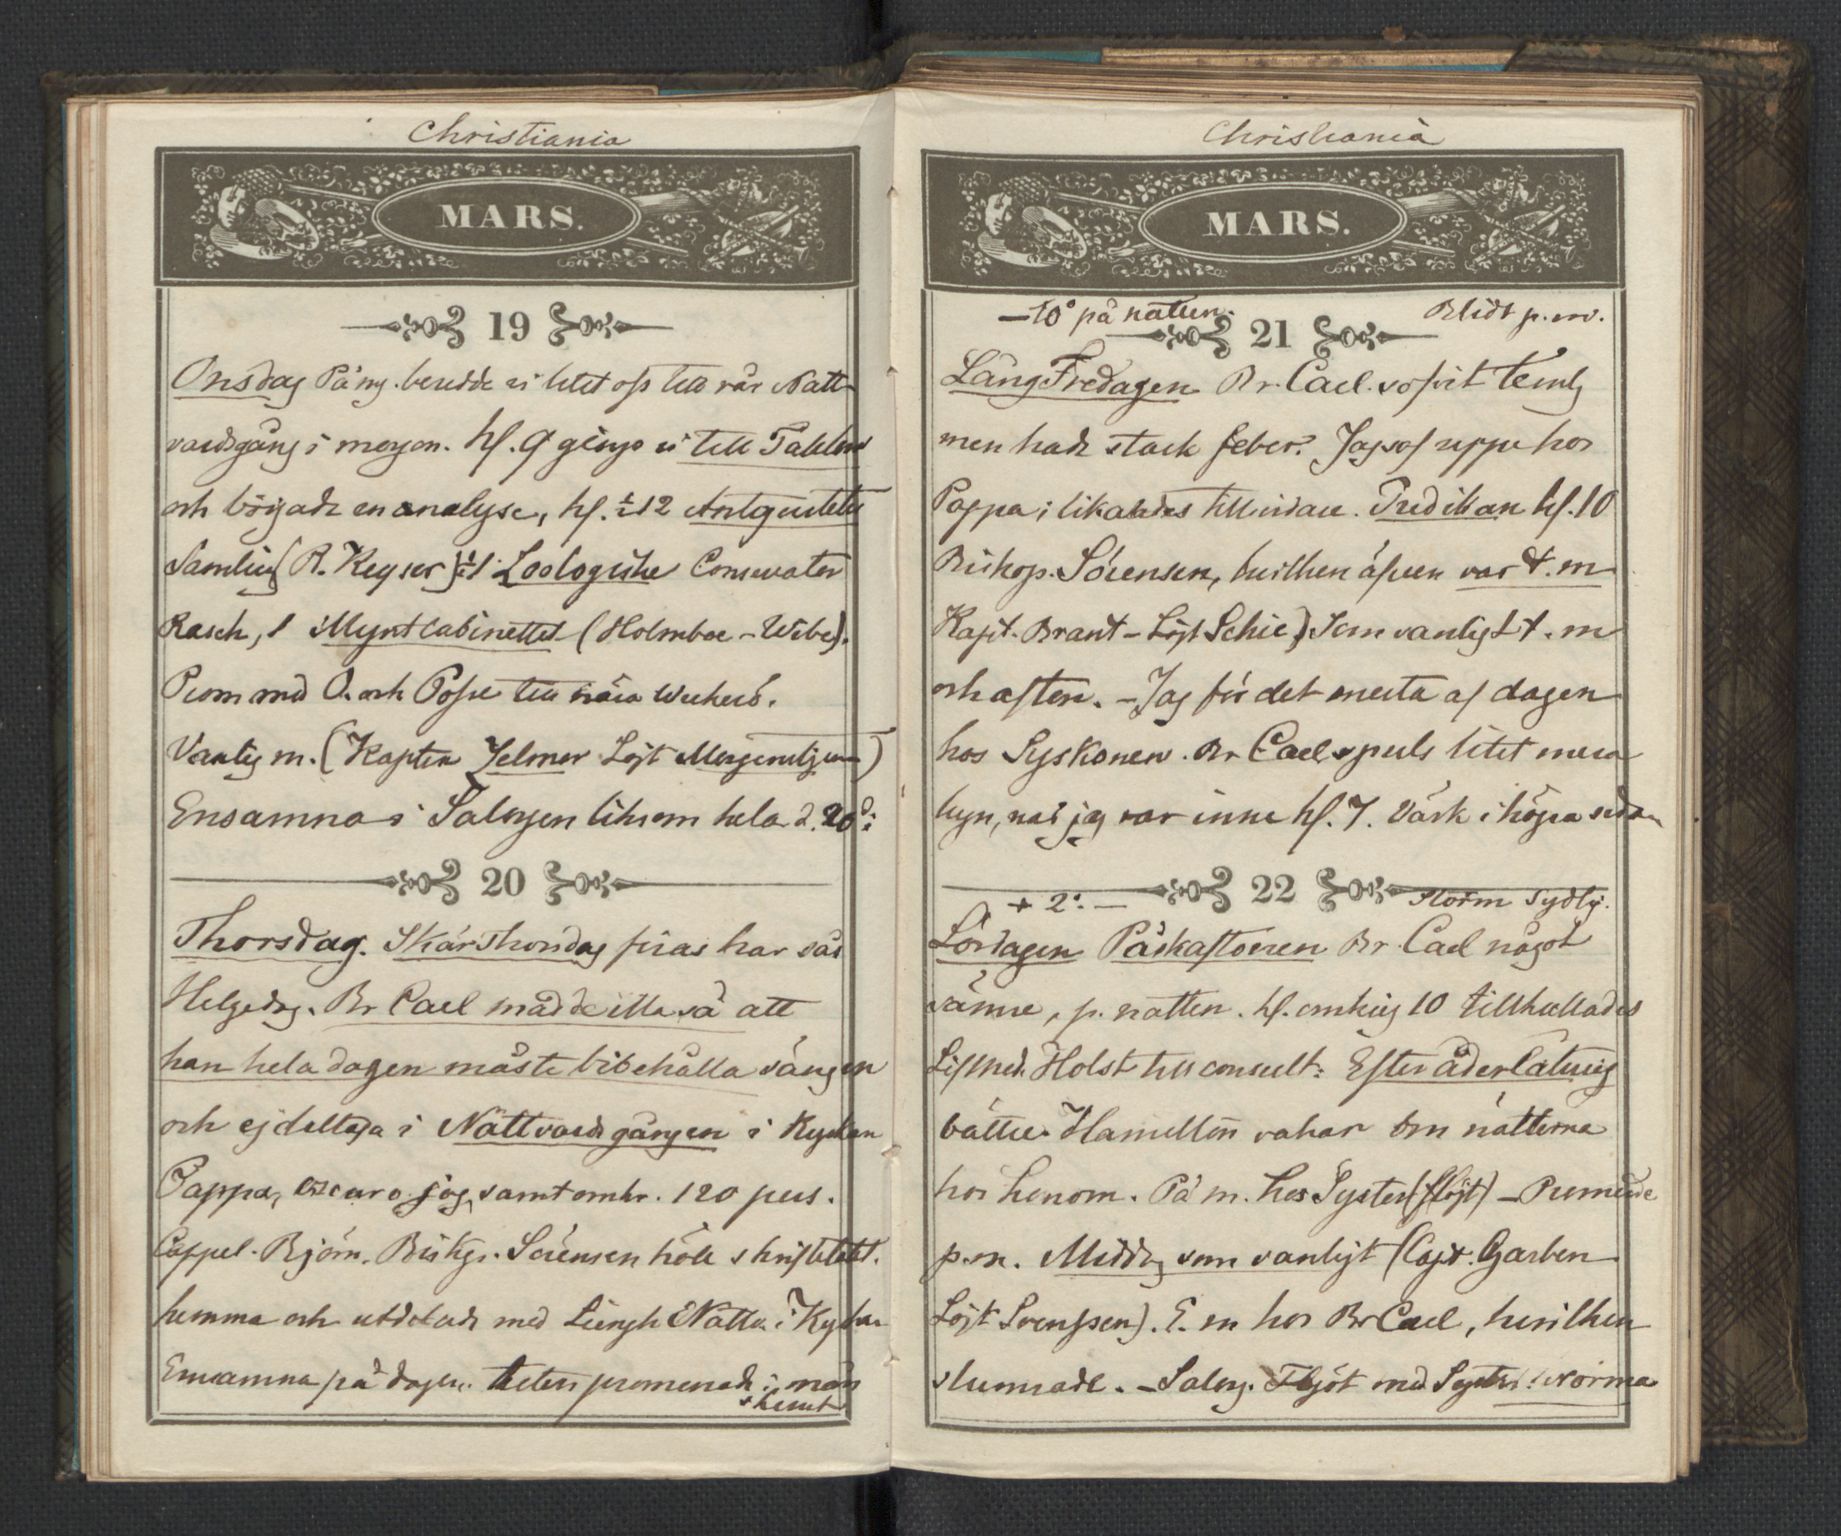 Christiania
MARS.
19
Onsdag På mg. beredde vi litet oss till vår Natt-
vardsgång i morgon. kl. 9 gingo vi till
och började en analyse, kl. ½12 Antquitets
Samling (R. Keyser) ½1 Zoologiske Conservator
Rasch, 1 Myntcabinettet (Holmboe - Wibe).
Prom med O. och Posse till nära
Vanlig m. (Kapten Zelmer Löjt Morgenstjerne)
Ensamna i Salongen liksom hela d. 20de
20
Thorsdag. Skärsthorsdag firas har sås
Helgedag. Br Carl mådde illa så att
han hela dagen måste bibehålla sängen
och ej deltaga i Nattvardsgången i Kyrkan
Pappa, Oscar o. jag, samt omkr. 120 pers.
Cappel. Björn. Biskp. Sörensen höll skriftetalet.
hemma och utdelade med Lungh Nattv. i Kyrkan
Ensamna på dagen. liten promenade i mån
skenet
Christiania
MARS.
-10° på natten. Blidt p. m.
21
LångFredagen Br. Carl sofvit temlg
men hade stark feber. Jag sof uppe hos
Pappa; likaledes till vidare. Predikan kl. 10
Biskop. Sörensen, hvilken äfven var t. m
Kapt. Brant - Löjt Schie) Som vanligt t. m
och afton. - Jag för det mesta af dagen
hos Syskonen. Br Carl litet mera
lugn, när jag var inne kl. 7. Värk i högra sidan
22
+ 2°. - Storm Sydlig.
Lördagen Påskaftonen Br. Carl något
sämre, p. natten. kl. omkrig 10 tillkallades
Lifmed. Holst till consult: Efter åderlåtning
bättre. Hamilton vakar om nätterna
hos honom. På m. hos Syster (flöjt) - Promende
p. m. Middag som vanligt (Capt. Garben
Löjt Svenssen). E. m hos Br Carl, hvilken
slumrade. - Salong. Flöjt med Syster: Norma